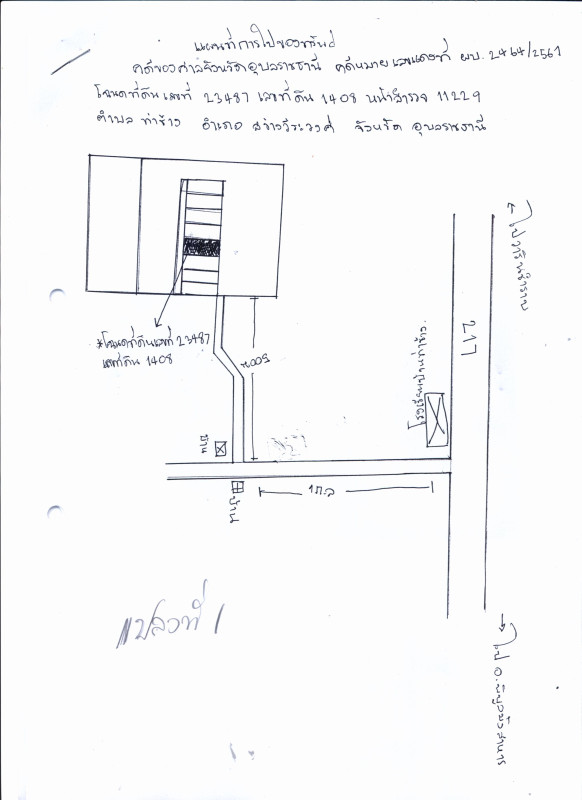 แผนที่การไปของทรัพย์
คดีของศาลจังหวัดอุบลราชธานี คดีหมายเลขแดงที่ ผบ. 2464/2561
โฉนดที่ดินเลขที่ 23487 เลขที่ดิน 1408 หน้าสำรวจ 11229
ตำบล ท่าช้าง อำเภอ สว่างวีระวงศ์ จังหวัด อุบลราชธานี
← ไปวารินชำราบ
217
*โฉนดที่ดินเลขที่ 23487
เลขที่ดิน 1408
500ม.
โรงเรียนบ้านท่าช้าง.
บ้าน
1ก.ม
บ้าน
แปลงที่ 1
→ ไป อ.พิบูลมังสาหาร